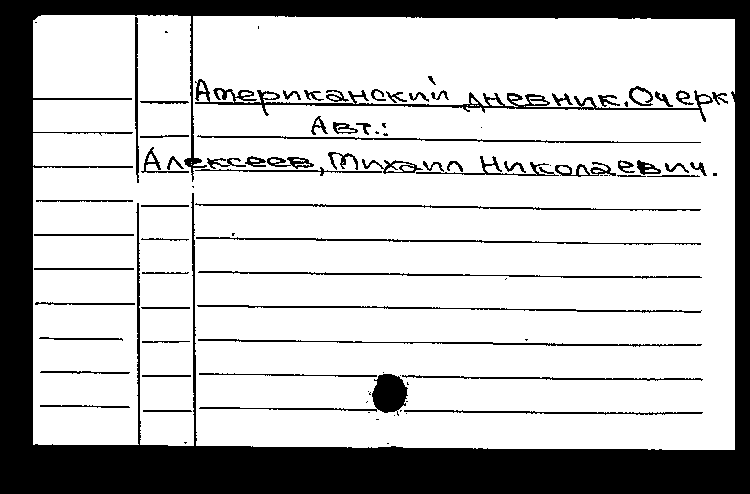 Американский дневник. Очерки
Авт.:
Алексеев, Михаил Николаевич.